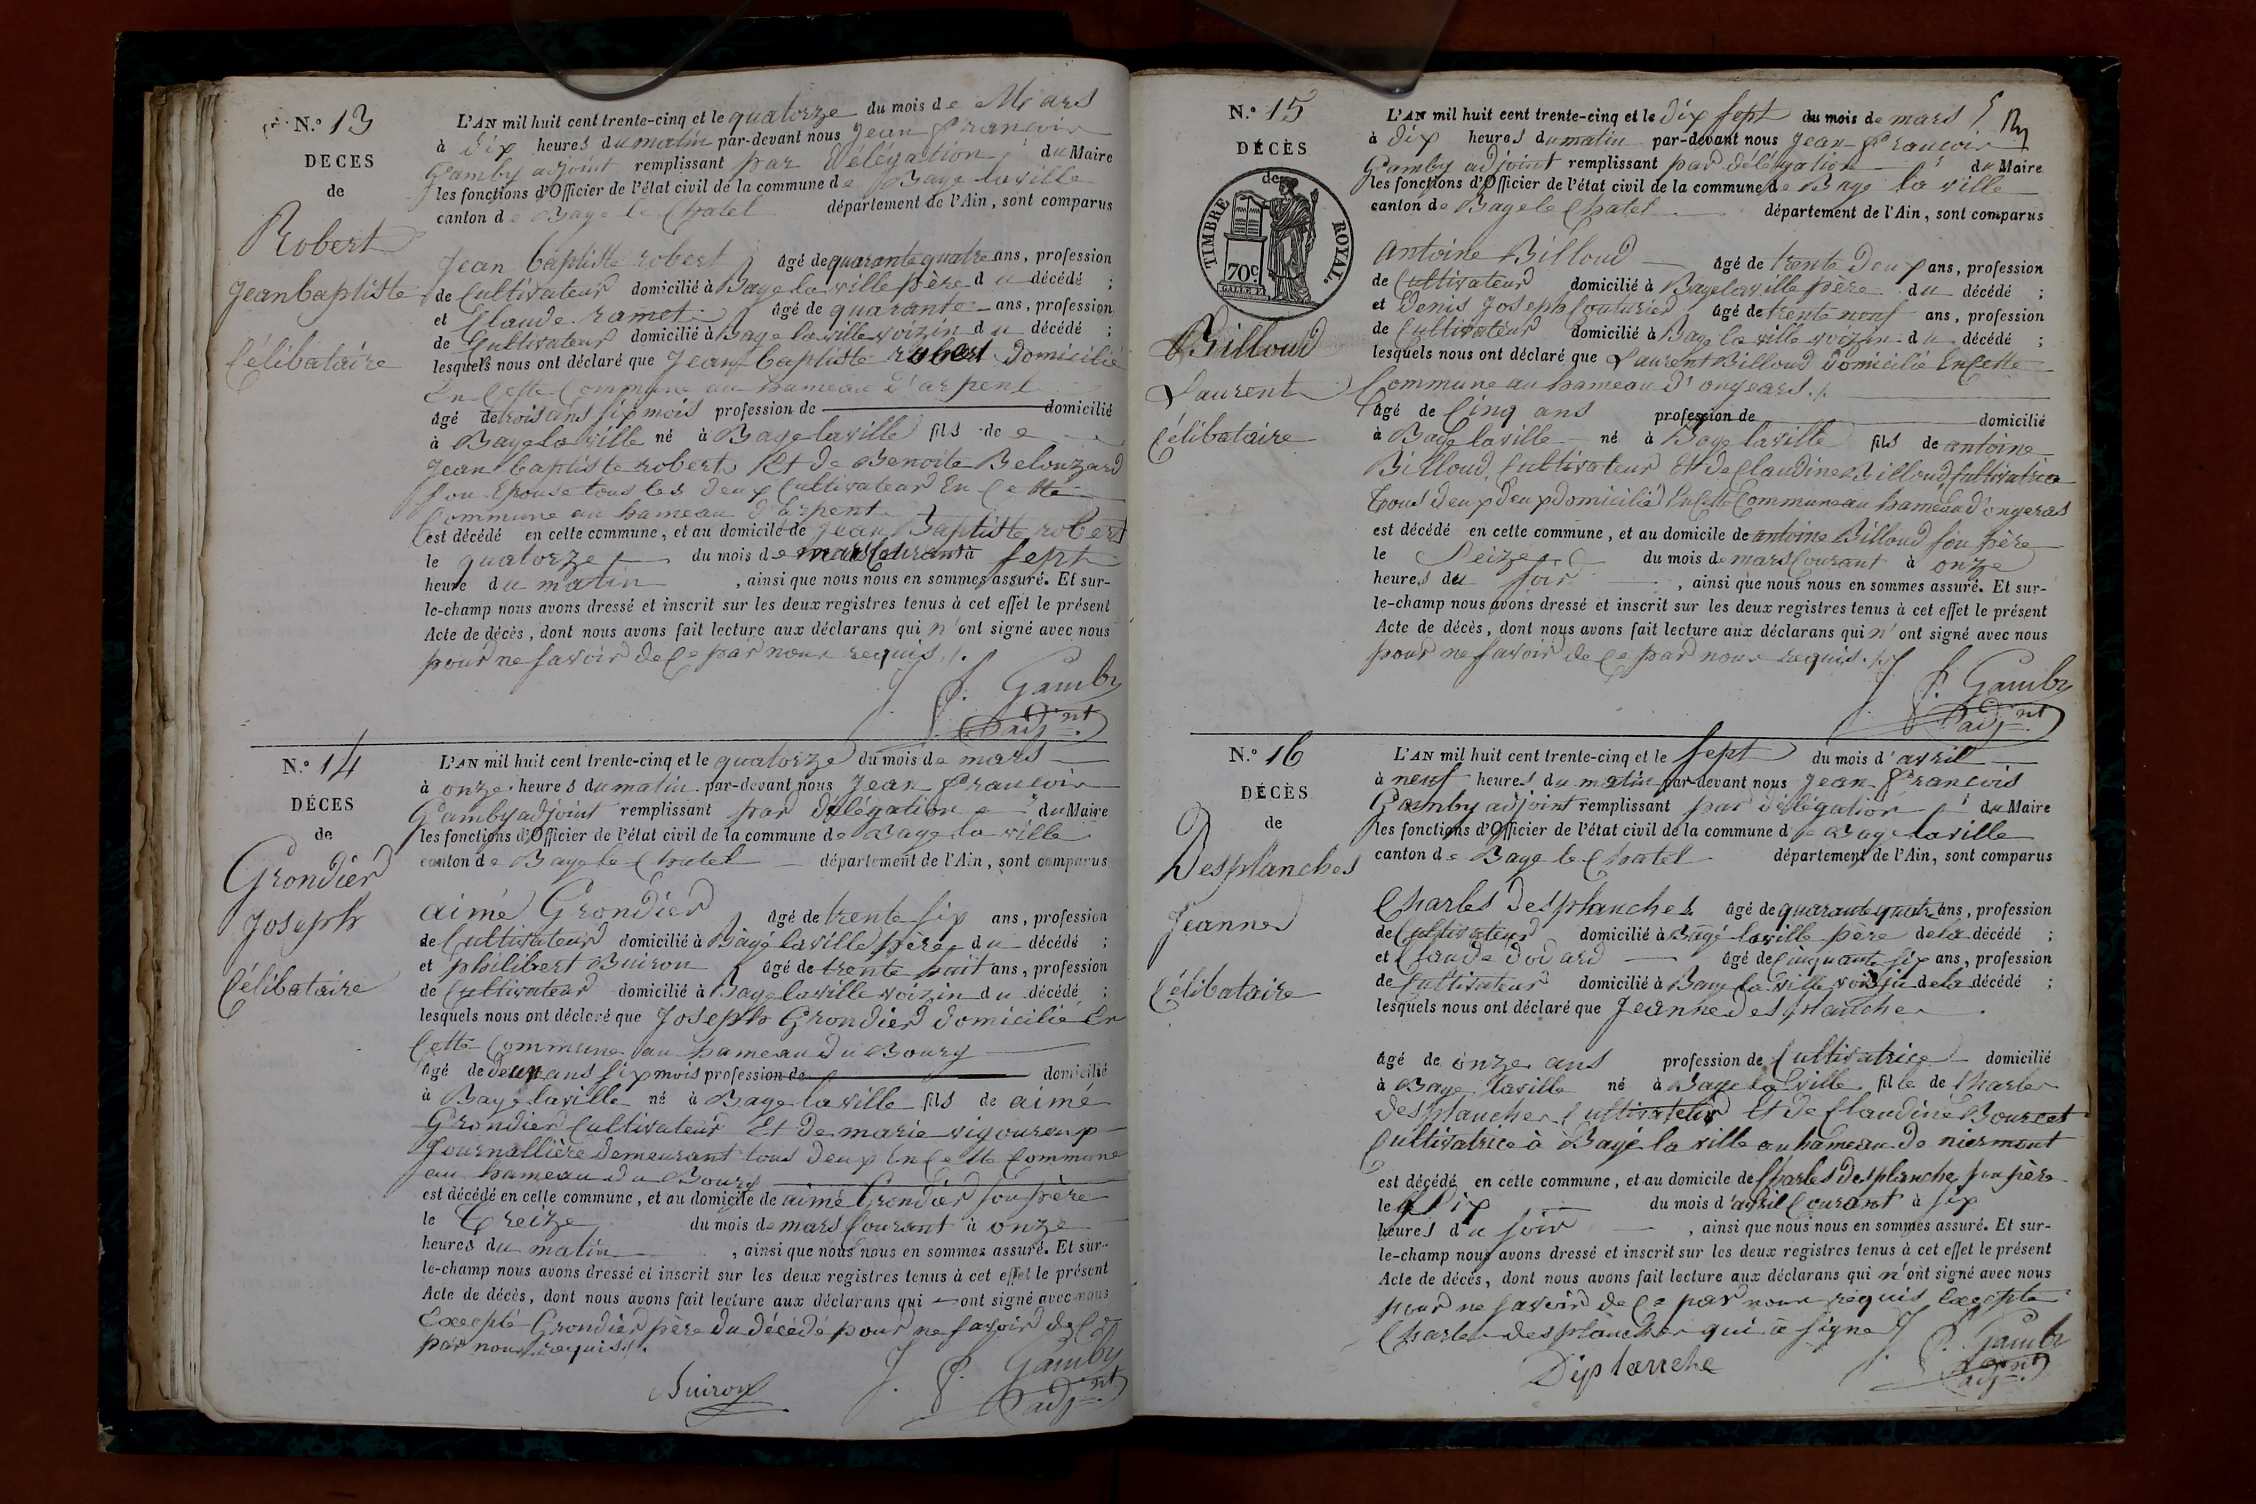 N.° 13
DECES
de
Robert
Jean baptiste
Célibataire
L'AN mil huit cent trente-cinq et le quatorze du mois de Mars
à Dix heures du matin par-devant nous Jean François
Gamby adjoint remplissant par Délégation du Maire
les fonctions d'Officier de l'état civil de la commune de Bage la ville
canton de Bage le Chatel département de l'Ain, sont comparus
Jean baptiste robert âgé de quarante quatre ans, profession
de Cultivateur domicilié à Bage la ville père du décédé ;
et Claude ramet âgé de quarante ans, profession
de Cultivateur domicilié à Bage la ville voizin du décédé ;
lesquels nous ont déclaré que Jean baptiste robert Domicilié
En Cette Commune au hameau d'arpent
âgé de trois ans six mois profession de domicilié
à Bage la ville né à Bage la ville fils de
Jean baptiste robert Et de Benoite Belouzard
son Epouse tous les deux Cultivateur En Cette
Commune au hameau d'arpent
est décédé en cette commune, et au domicile de Jean Baptiste robert
le quatorze du mois de mars Courant à sept
heure du matin , ainsi que nous nous en sommes assuré. Et sur-
le-champ nous avons dressé et inscrit sur les deux registres tenus à cet effet le présent
Acte de décès, dont nous avons fait lecture aux déclarans qui n'ont signé avec nous
pour ne savoir de Ce par nous requis ./.
J. F. Gamby
adj.nt
N.° 14
DÉCES
de
Grondier
Joseph
Célibataire
L'AN mil huit cent trente-cinq et le quatorze du mois de mars
à onze heures du matin par-devant nous Jean François
Gamby adjoint remplissant par délégation du Maire
les fonctions d'Officier de l'état civil de la commune de Bage la ville
canton de Bage le Chatel département de l'Ain, sont comparus
aimé Grondier âgé de trente six ans, profession
de Cultivateur domicilié à Bagé la ville père du décédé ;
et philibert Buiron âgé de trente huit ans, profession
de Cultivateur domicilié à Bage la ville voizin du décédé ;
lesquels nous ont déclaré que Joseph Grondier domicilié En
Cette Commune au hameau du Bourg
âgé de deux ans six mois profession de domicilié
à Bage la ville né à Bage la ville fils de aimé
Grondier Cultivateur Et de marie vigoureux
Journallière demeurant tous deux En Cette Commune
au hameau du Bourg
est décédé en cette commune, et au domicile de aimé Grondier son père
le Treize du mois de mars Courant à onze
heures du matin , ainsi que nous nous en sommes assuré. Et sur-
le-champ nous avons dressé et inscrit sur les deux registres tenus à cet effet le présent
Acte de décès, dont nous avons fait lecture aux déclarans qui ont signé avec nous
Excepté Grondier père du décédé pour ne savoir de Ce
par nous requis ./.
Buiron
J. F. Gamby
adj.nt
N.° 15
DÉCÈS
de
TIMBRE ROYAL.
70c.
Billoud
Laurent
Célibataire
L'AN mil huit cent trente-cinq et le Dix sept du mois de mars
à Dix heures du matin par-devant nous Jean François
Gamby adjoint remplissant par délégation du Maire
les fonctions d'Officier de l'état civil de la commune de Bage la ville
canton de Bage le Chatel département de l'Ain, sont comparus
antoine Billoud âgé de trente Deux ans, profession
de Cultivateur domicilié à Bage la ville père du décédé ;
et Denis Joseph Couturier âgé de trente neuf ans, profession
de Cultivateur domicilié à Bage la ville voizin du décédé ;
lesquels nous ont déclaré que Laurent Billoud Domicilié En Cette
Commune au hameau d'ongears ./.
âgé de Cinq ans profession de domicilié
à Bage la ville né à Bage la ville fils de antoine
Billoud Cultivateur Et de Claudine Billoud Cultivatrice
tous deux Deux Domicilié En Cette Commune au hameau d'ongeras
est décédé en cette commune, et au domicile de antoine Billoud son père
le Seize du mois de mars Courant à onze
heures du soir , ainsi que nous nous en sommes assuré. Et sur-
le-champ nous avons dressé et inscrit sur les deux registres tenus à cet effet le présent
Acte de décès, dont nous avons fait lecture aux déclarans qui n'ont signé avec nous
pour ne savoir de Ce par nous requis ./.
J. F. Gamby
adj.nt
N.° 16
DÉCÈS
de
Desplanches
Jeanne
Célibataire
L'AN mil huit cent trente-cinq et le sept du mois d'avril
à neuf heures du matin par-devant nous Jean François
Gamby adjoint remplissant par délégation du Maire
les fonctions d'Officier de l'état civil de la commune de Bage la ville
canton de Bage le Chatel département de l'Ain, sont comparus
Charles Desplanches âgé de quarante quatre ans, profession
de Cultivateur domicilié à Bagé la ville père de la décédé ;
et Claude Dodard âgé de Cinquante six ans, profession
de Cultivateur domicilié à Bage la ville voisin de la décédé ;
lesquels nous ont déclaré que Jeanne desplanches
âgé de onze ans profession de Cultivatrice domicilié
à Bage la ville né à Bage la ville fille de Charles
desplanches Cultivateur Et de Claudine Bourcet
Cultivatrice à Bagé la ville au hameau de niermont
est décédé en cette commune, et au domicile de Charles Desplanche son père
le Six du mois d'avril Courant à six
heures du soir , ainsi que nous nous en sommes assuré. Et sur-
le-champ nous avons dressé et inscrit sur les deux registres tenus à cet effet le présent
Acte de décès, dont nous avons fait lecture aux déclarans qui n'ont signé avec nous
pour ne savoir de Ce par nous requis Excepté
Charles desplanches qui a signé
Diplanche
J. F. Gamby
adj.nt